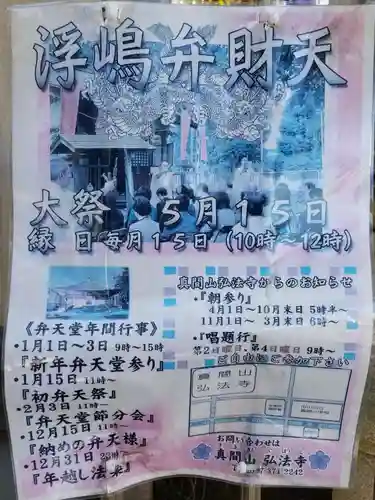 浮嶋弁財天
大祭 5月15日
縁 日 毎月15日(10時~12時)
《弁天堂年間行事》
・1月1日~3日 9時~15時
『新年弁天堂参り』
・1月15日 11時~
『初弁天祭』
・2月3日 11時~
『弁天堂節分会』
・12月15日 11時~
『納めの弁天様』
・12月31日 23時~
『年越し法楽』
真間山弘法寺からのお知らせ
・『朝参り』
4月1日~10月末日 5時半~
11月1日~ 3月末日 6時~
・『唱題行』
第2日曜日、第4日曜日 9時~
ご自由にご参加下さい
真間山
弘法寺
お問い合わせは
真間山 弘法寺